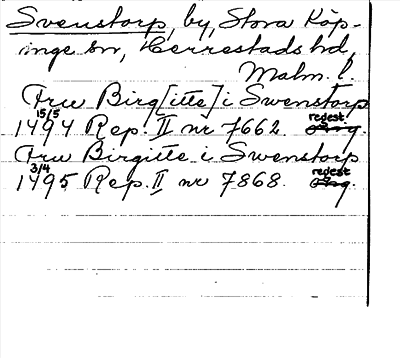 Svenstorp, by, Stora Köp-
inge sn, Herrestads hd,
Malm. l.
Fru Birg[itte] i Swenstorp
1494 15/5 Rep. II nr 7662. redest Orig.
Fru Birgitte i Swenstorp
1495 3/4 Rep. II nr 7868. redest Orig.